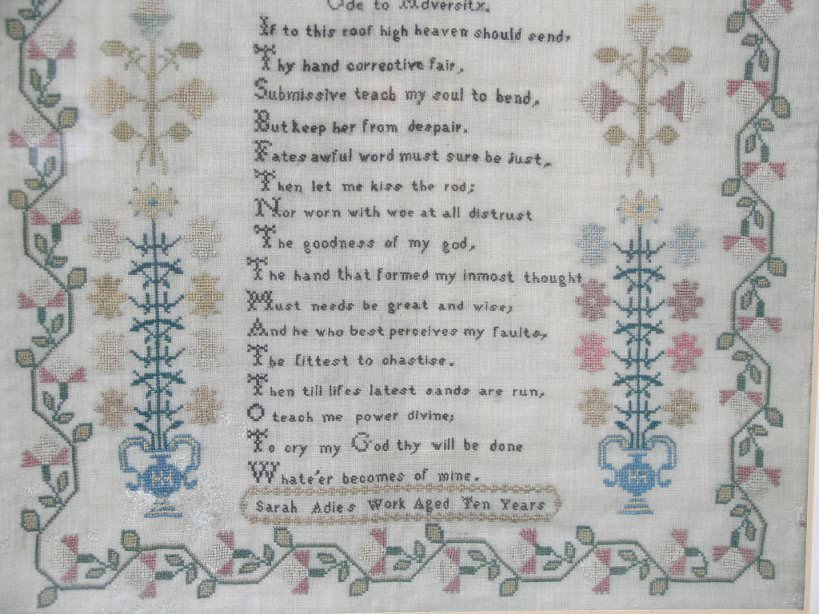 Ode to Adversity.
If to this roof high heaven should send,
Thy hand corrective fair,
Submissive teach my soul to bend,
But keep her from despair.
Fates awful word must sure be just,
Then let me kiss the rod;
Nor worn with woe at all distrust
The goodness of my god,
The hand that formed my inmost thought
Must needs be great and wise;
And he who best perceives my faults,
The fittest to chastise.
Then till lifes latest sands are run,
O teach me power divine;
To cry my God thy will be done
Whate'er becomes of mine.
Sarah Adies Work Aged Ten Years